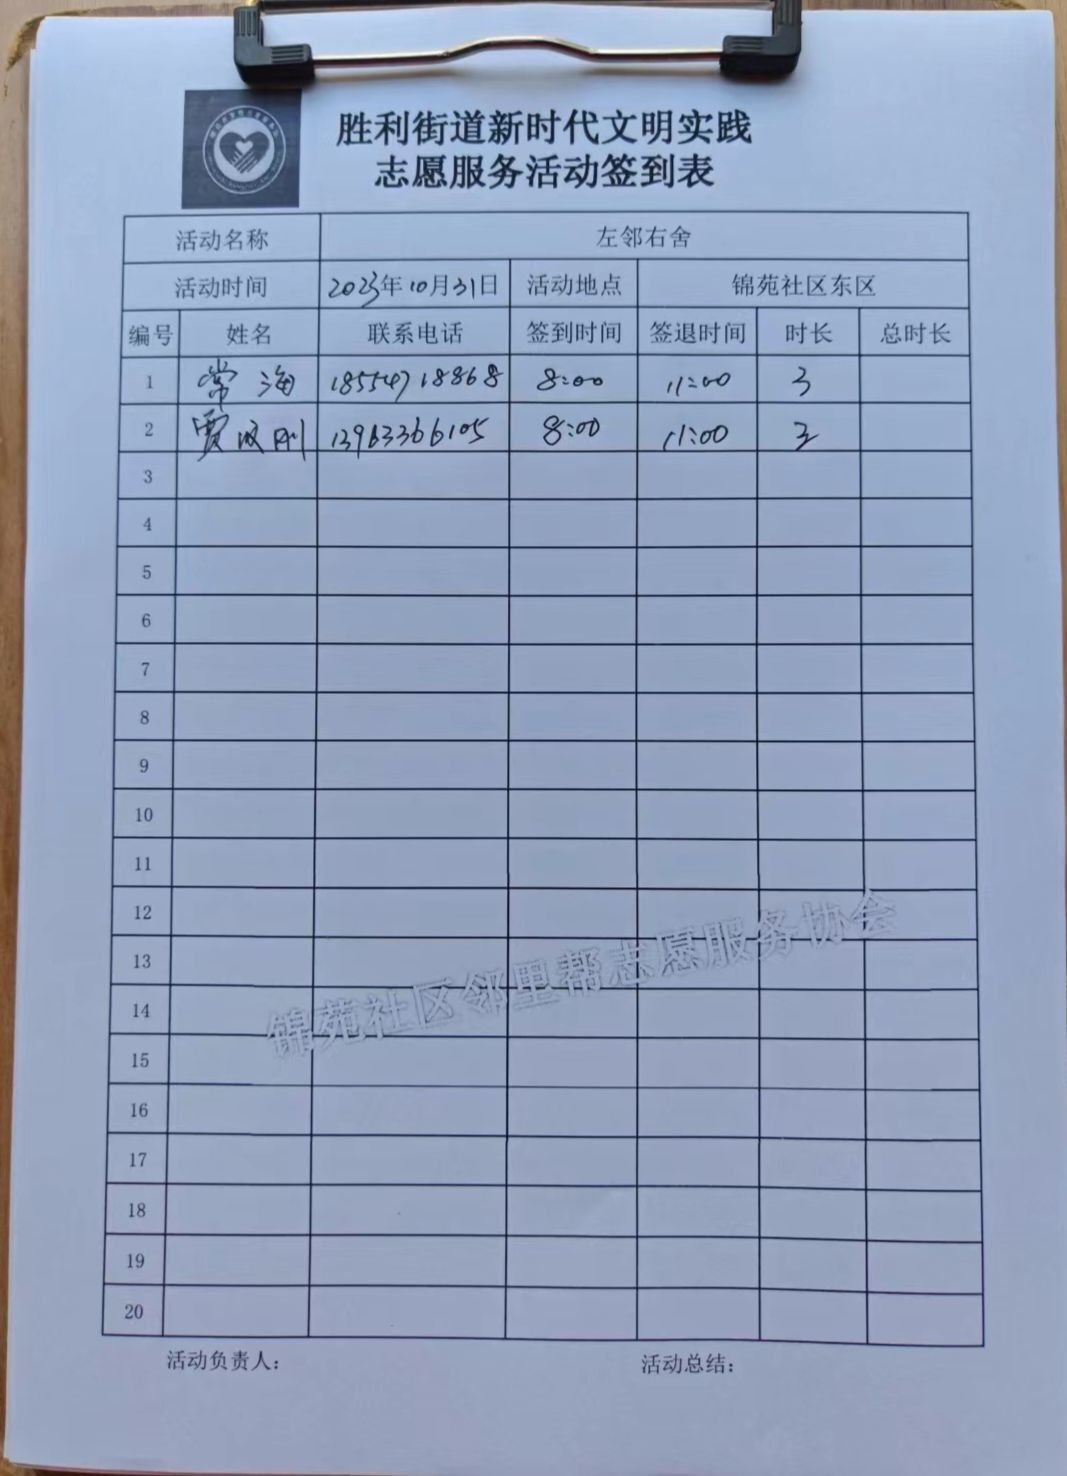 胜利街道新时代文明实践
志愿服务活动签到表
活动名称 左邻右舍
活动时间 2023年10月31日 活动地点 锦苑社区东区
编号 姓名 联系电话 签到时间 签退时间 时长 总时长
1 常海 18554718868 8:00 11:00 3
2 贾 刚 13963366105 8:00 11:00 3
3
4
5
6
7
8
9
10
11
12
13
14
15
16
17
18
19
20
锦苑社区邻里帮志愿服务协会
活动负责人： 活动总结：